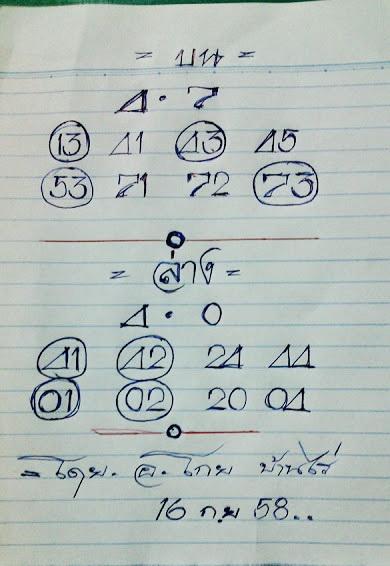 = บน =
4 · 7
13 41 43 45
53 71 72 73
= ล่าง =
4 · 0
41 42 24 44
01 02 20 04
= โดย. อ. โกย บ้านไร่
16 ก.ย 58..